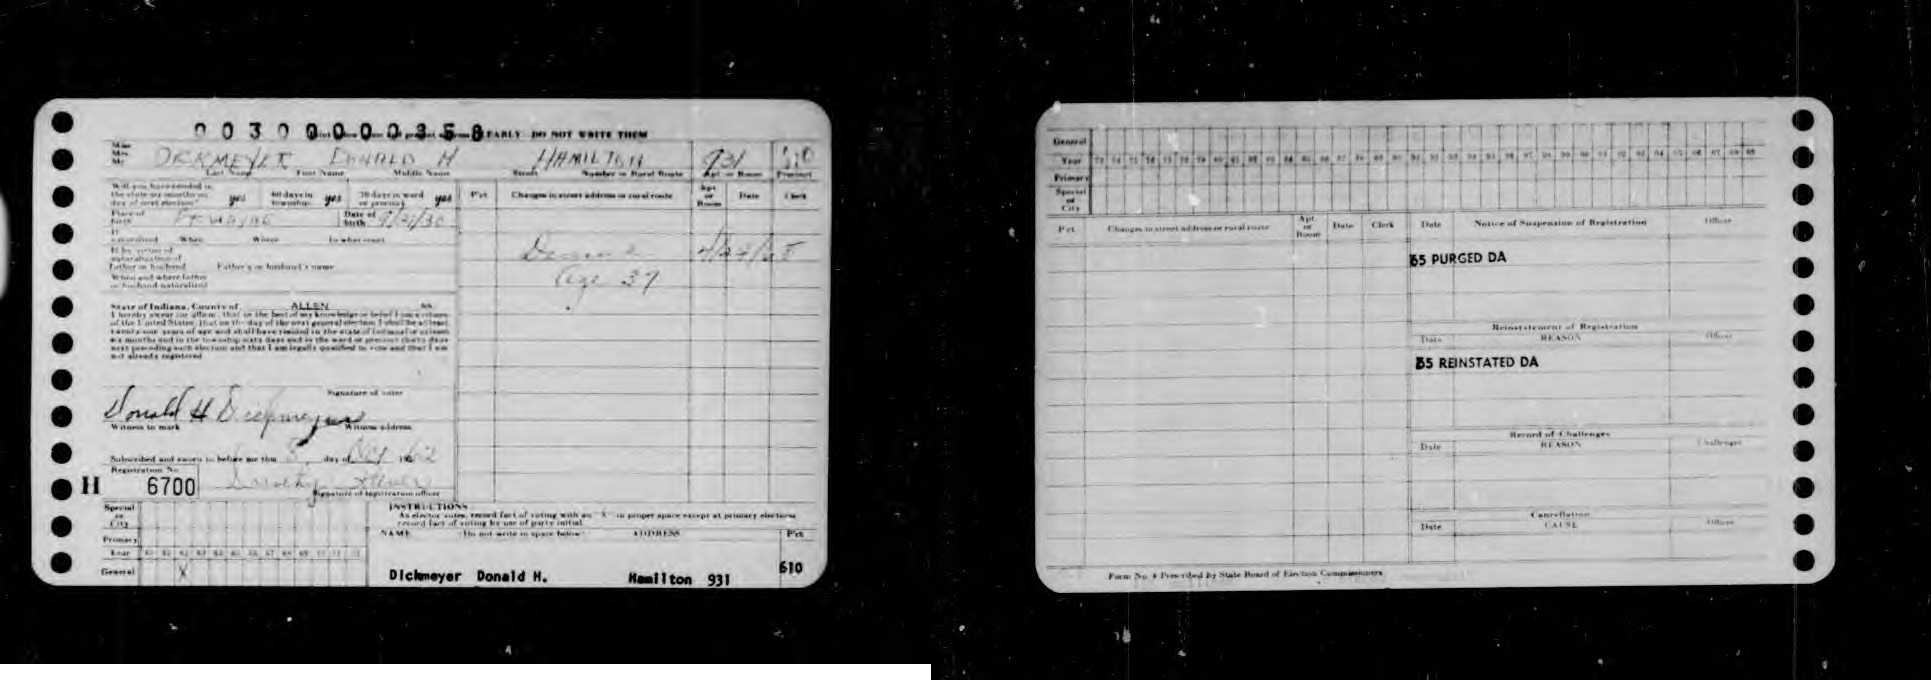 0030000000358
CLEARLY DO NOT WRITE THEM
Miss
Mrs.
Mr.
DICKMEYER DONALD H HAMILTON 931 610
Last Name First Name Middle Name Street Number or Rural Route Apt. or Room Precinct
Will you have resided in the state six months on day of next election? yes 60 days in township yes 30 days in ward or precinct yes
Place of birth FT WAYNE Date of birth 9/21/30
If naturalized When Where In what court
If by virtue of naturalization of father or husband Father's or husband's name
When and where father or husband naturalized
P'ct Changes in street address or rural route Apt. or Room Date Clerk
Age 37
State of Indiana, County of ALLEN SS.
I hereby swear (or affirm) that to the best of my knowledge or belief I am a citizen
of the United States, that on the day of the next general election I shall be at least
twenty-one years of age and shall have resided in the state of Indiana
six months and in the township sixty days and in the ward or precinct thirty days
next preceding such election and that I am legally qualified to vote and that I am
not already registered
Signature of voter
Donald H Dickmeyer
Witness to mark Witness address
Subscribed and sworn to before me this 5 day of 1962
Registration No.
H 6700 Dorothy
Signature of registration officer
Special or City
Primary
Year 60 61 62 63 64 65 66 67 68 69 70 71 72
General X
INSTRUCTIONS
As elector votes, record fact of voting with an "X" in proper space except at primary elections
record fact of voting by use of party initial.
NAME (Do not write in space below) ADDRESS P'ct
Dickmeyer Donald H. Hamilton 931 610
General
Year
Primary
Special or City
P'ct Changes in street address or rural route Apt. or Room Date Clerk
Date Notice of Suspension of Registration Officer
65 PURGED DA
Reinstatement of Registration
Date REASON Officer
65 REINSTATED DA
Record of Challenges
Date REASON Challenger
Cancellation
Date CAUSE Officer
Form No. 4 Prescribed by State Board of Election Commissioners